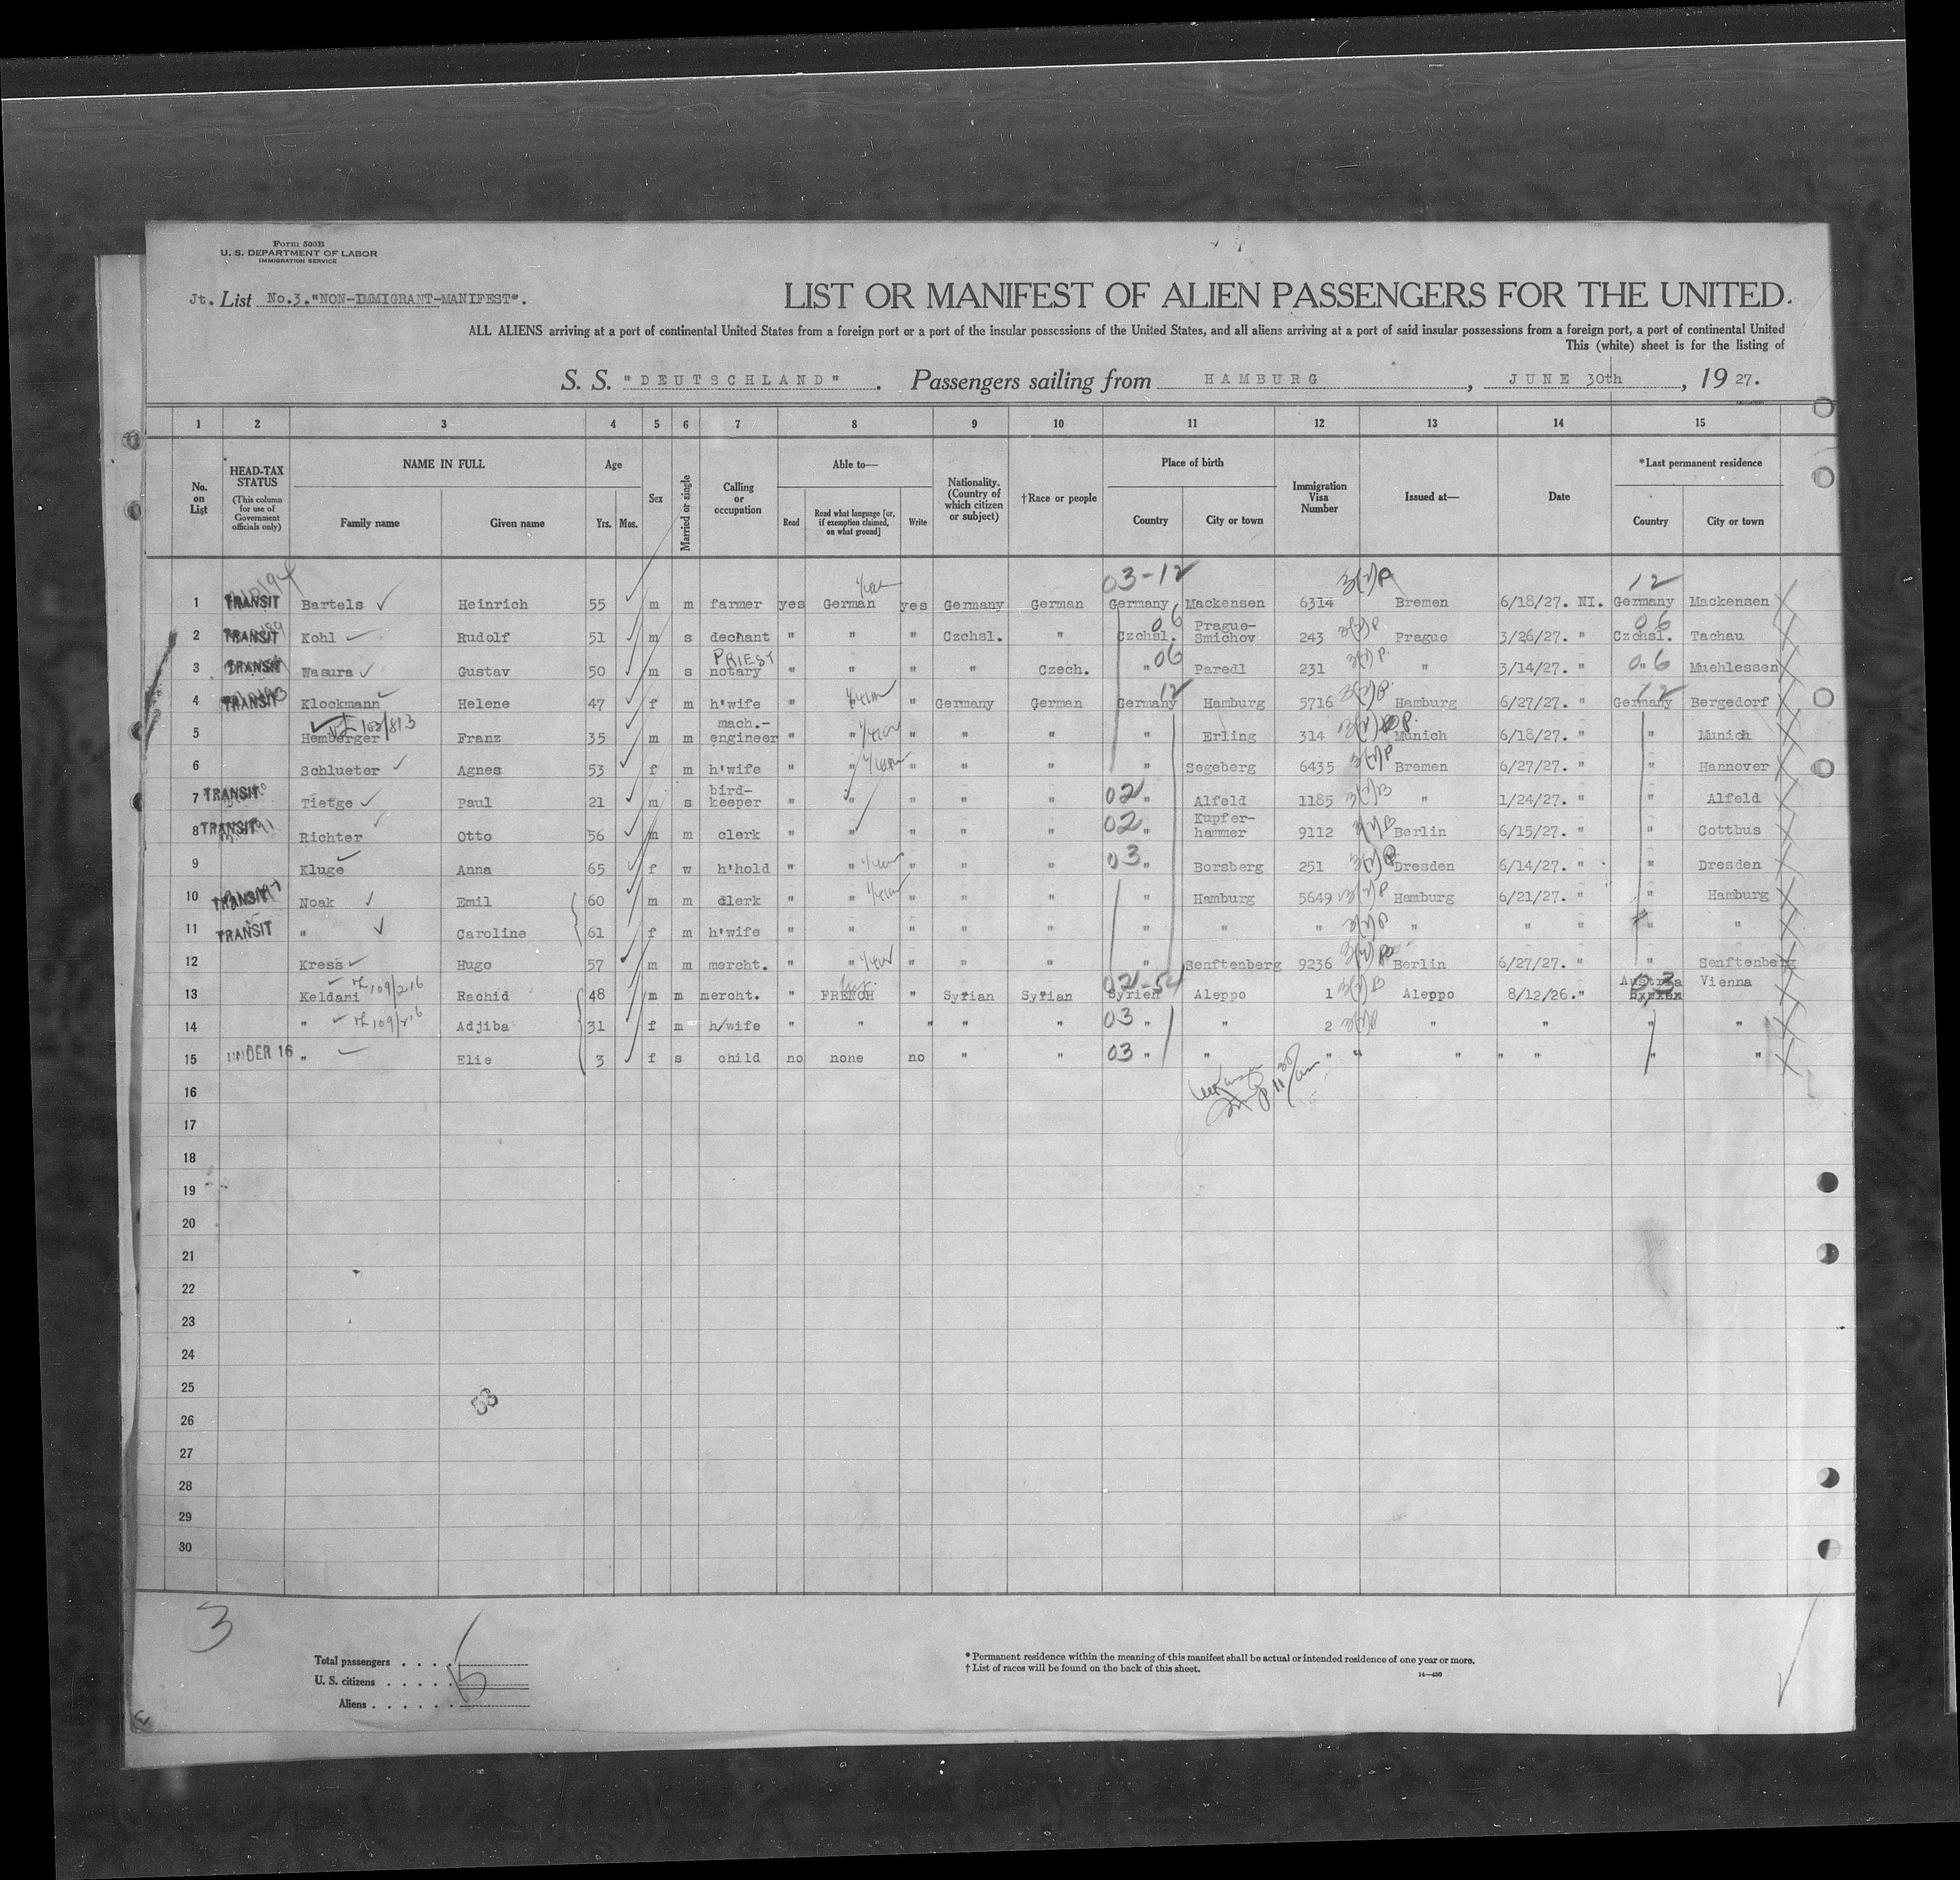 Form 500B
U. S. DEPARTMENT OF LABOR
IMMIGRATION SERVICE
Jt. List No.3."NON-IMMIGRANT-MANIFEST".
LIST OR MANIFEST OF ALIEN PASSENGERS FOR THE UNITED.
ALL ALIENS arriving at a port of continental United States from a foreign port or a port of the insular possessions of the United States, and all aliens arriving at a port of said insular possessions from a foreign port, a port of continental United
This (white) sheet is for the listing of
S. S. "DEUTSCHLAND". Passengers sailing from HAMBURG, JUNE 30th, 19 27.
1 2 3 4 5 6 7 8 9 10 11 12 13 14 15
No. on List
HEAD-TAX STATUS (This column for use of Government officials only)
NAME IN FULL Family name Given name
Age Yrs. Mos.
Sex
Married or single
Calling or occupation
Able to— Read Read what language [or, if exemption claimed, on what ground] Write
Nationality. (Country of which citizen or subject)
†Race or people
Place of birth Country City or town
Immigration Visa Number
Issued at—
Date
*Last permanent residence Country City or town
03-12 3(2)P 12
1 TRANSIT Bartels Heinrich 55 m m farmer yes German yes Germany German Germany Mackensen 6314 Bremen 6/18/27. NI. Germany Mackensen
2 TRANSIT Kohl Rudolf 51 m s dechant " " " Czchsl. " Czchsl. 06 Prague-Smichov 243 Prague 3/26/27. " Czchsl. 06 Tachau
3 TRANSIT Wasura Gustav 50 m s PRIEST notary " " " " Czech. " 06 Paredl 231 " 3/14/27. " " 06 Muehlessen
4 TRANSIT Klockmann Helene 47 f m h'wife " " " Germany German Germany 12 Hamburg 5716 Hamburg 6/27/27. " Germany 12 Bergedorf
103/813
5 Hemberger Franz 35 m m mach.-engineer " " " " " " Erling 314 Munich 6/18/27. " " Munich
6 Schlueter Agnes 53 f m h'wife " " " " " " Segeberg 6435 Bremen 6/27/27. " " Hannover
7 TRANSIT Tietge Paul 21 m s bird-keeper " " " " " 02 " Alfeld 1185 " 1/24/27. " " Alfeld
8 TRANSIT Richter Otto 56 m m clerk " " " " 02 " Kupfer-hammer 9112 Berlin 6/15/27. " " Cottbus
9 Kluge Anna 65 f w h'hold " " " " " 03 " Borsberg 251 Dresden 6/14/27. " " Dresden
10 TRANSIT Noak Emil 60 m m clerk " " " " " " Hamburg 5649 Hamburg 6/21/27. " " Hamburg
11 TRANSIT " Caroline 61 f m h'wife " " " " " " " " " " " " "
12 Kress Hugo 57 m m mercht. " " " " " " Senftenberg 9236 Berlin 6/27/27. " " Senftenberg
13 Keldani 109/216 Rachid 48 m m mercht. " FRENCH " Syrian Syrian Syrien 02-54 Aleppo 1 Aleppo 8/12/26." Austria 03 Vienna
14 " 109/216 Adjiba 31 f m h/wife " " " " " 03 " " 2 " " " "
15 UNDER 16 " Elie 3 f s child no none no " " 03 " " " " " " " "
16
17
18
19
20
21
22
23
24
25
26
27
28
29
30
58
3
Total passengers . . . .
U. S. citizens . . . . . 15
Aliens . . . . . .
* Permanent residence within the meaning of this manifest shall be actual or intended residence of one year or more.
† List of races will be found on the back of this sheet.
14—430